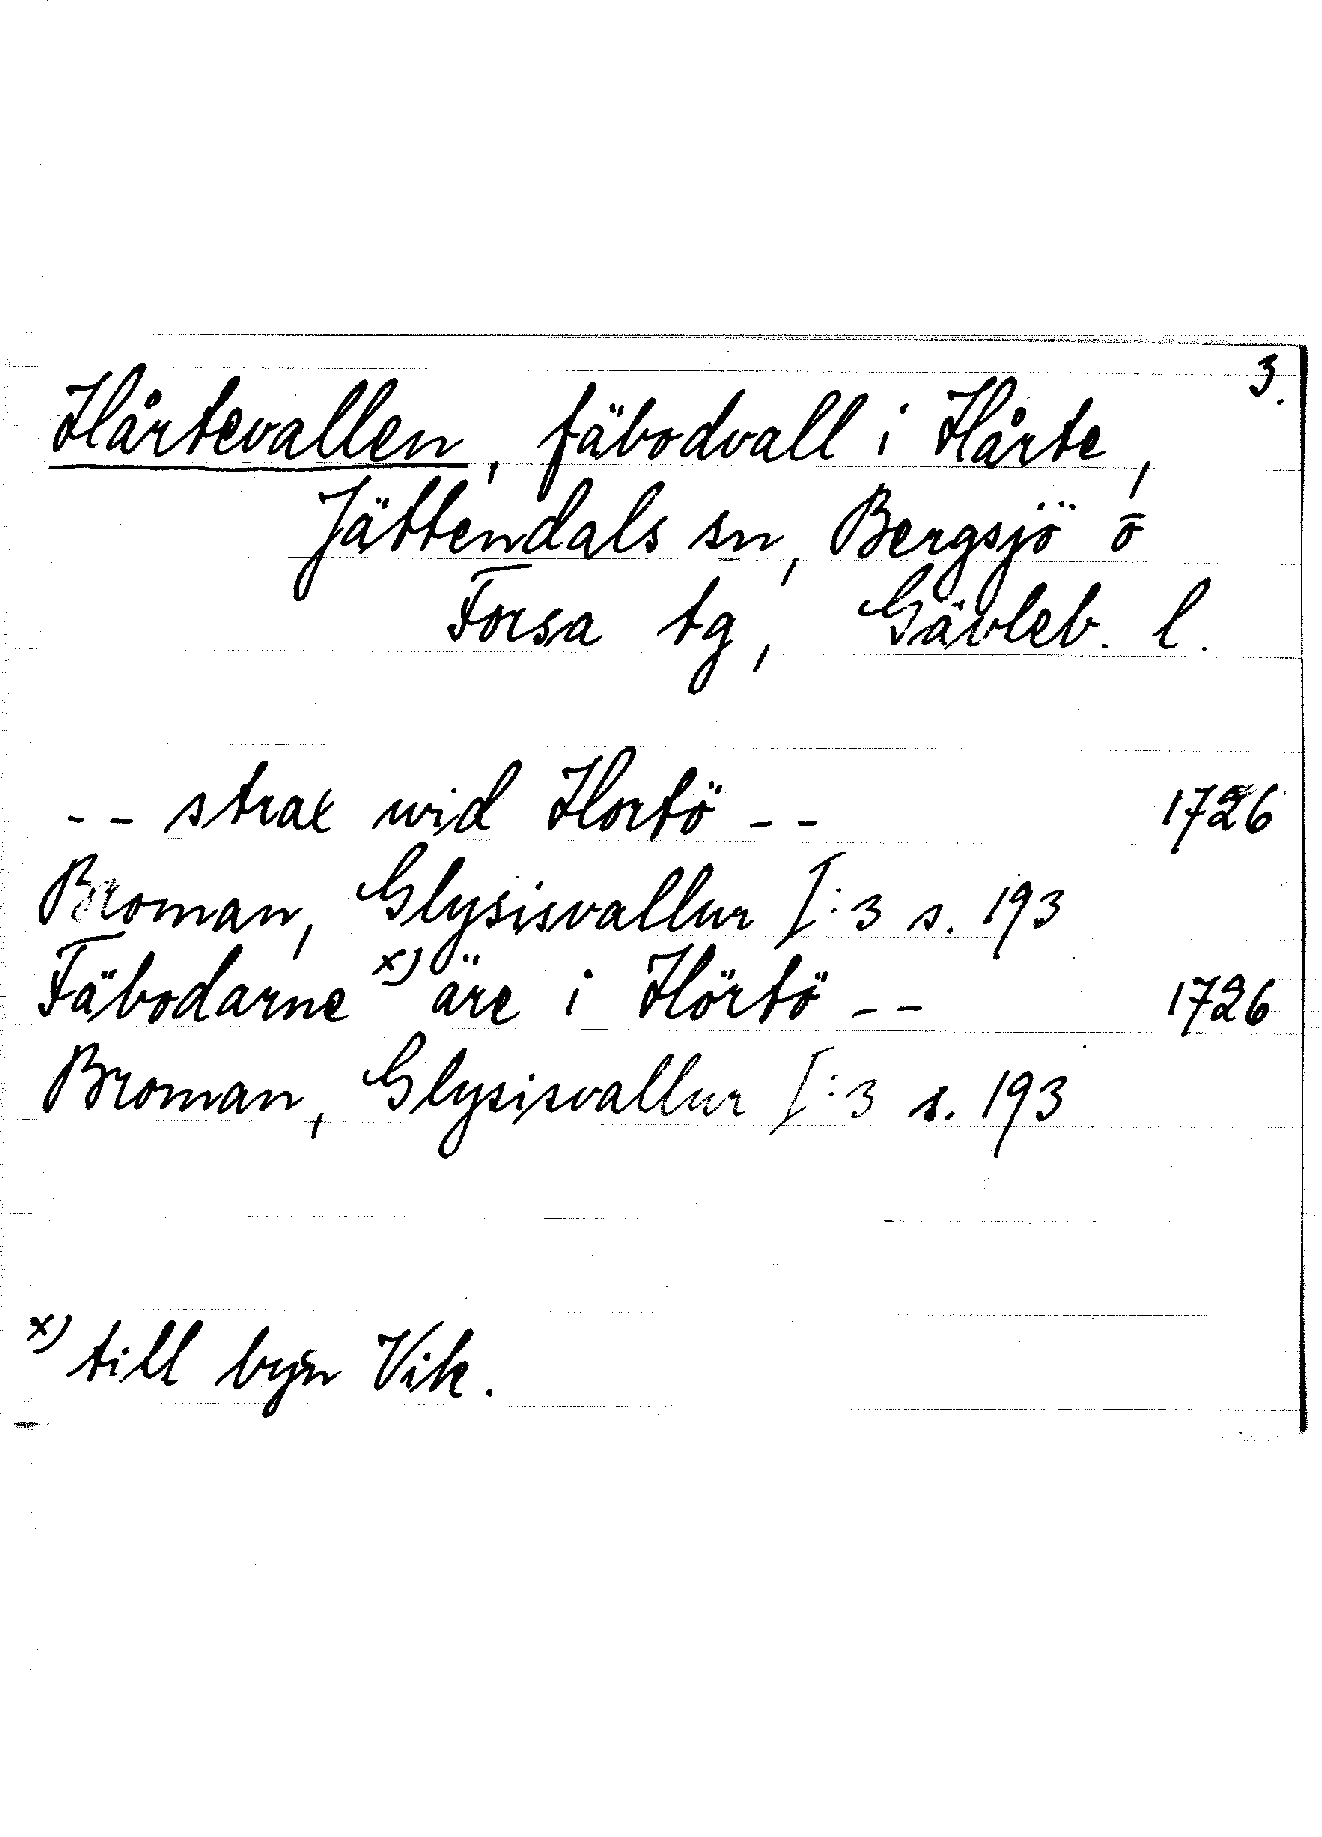 3.
Hårtevallen, fäbodvall i Hårte,
Jättendals sn, Bergsjö o
Forsa tg, Gävleb. l.
-- strax wid Hortö -- 1726
Broman, Glysisvallur I:3 s. 193
Fäbodarne x) äre i Hörtö -- 1726
Broman, Glysisvallur I:3 s. 193
x) till byn Vik.